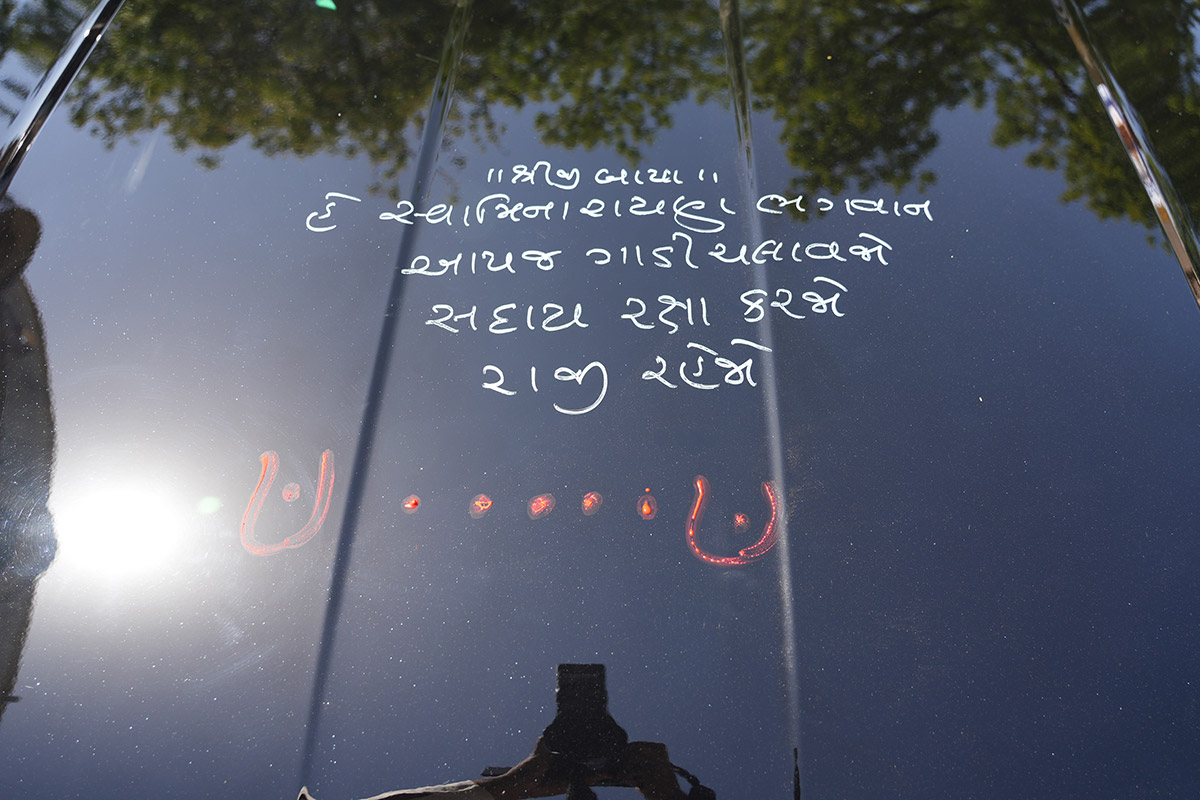 ॥ શ્રીજી બાપા ॥
હે સ્વામિનારાયણ ભગવાન
આપજ ગાડી ચલાવજો
સદાય રક્ષા કરજો
રાજી રહેજો